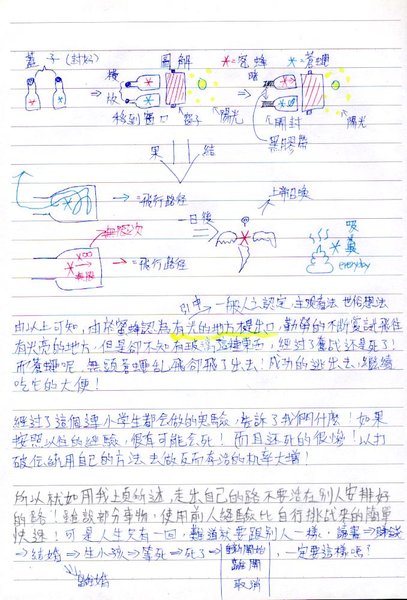 蓋子(封好)
圖解
*=蜜蜂 *=蒼蠅
橫放
暗
移到窗口
窗子
陽光
開封
陽光
黑膠帶
果 結
→=飛行路徑
上帝召喚
無限次
一日後
吸糞
→=飛行路徑
everyday
引申→一般人之認定,主觀看法 世俗想法
由以上可知,由於蜜蜂認為有光的地方是出口,勤勞的不斷嘗試飛往
有光亮的地方,但是卻不知有玻璃這種東西,經過了奮戰還是死了!
而蒼蠅呢 無頭蒼蠅亂飛卻飛了出去!成功的逃出去,繼續
吃它的大便!
經過了這個連小學生都會做的實驗,告訴了我們什麼!如果
按照以往的經驗,很有可能會死!而且還死的很慘!以打
破傳統用自己的方法去做反而存活的機率大增!
所以就如同我上頁所述,走出自己的路不要活在別人安排好
的路!雖說部分事物,使用前人經驗比自行摸出來的簡單
快速!可是人生只有一回,難道就要跟別人一樣,讀書→賺錢
→結婚→生小孩→等死→死了→ ,一定要這樣嗎?
離婚
離開
取消